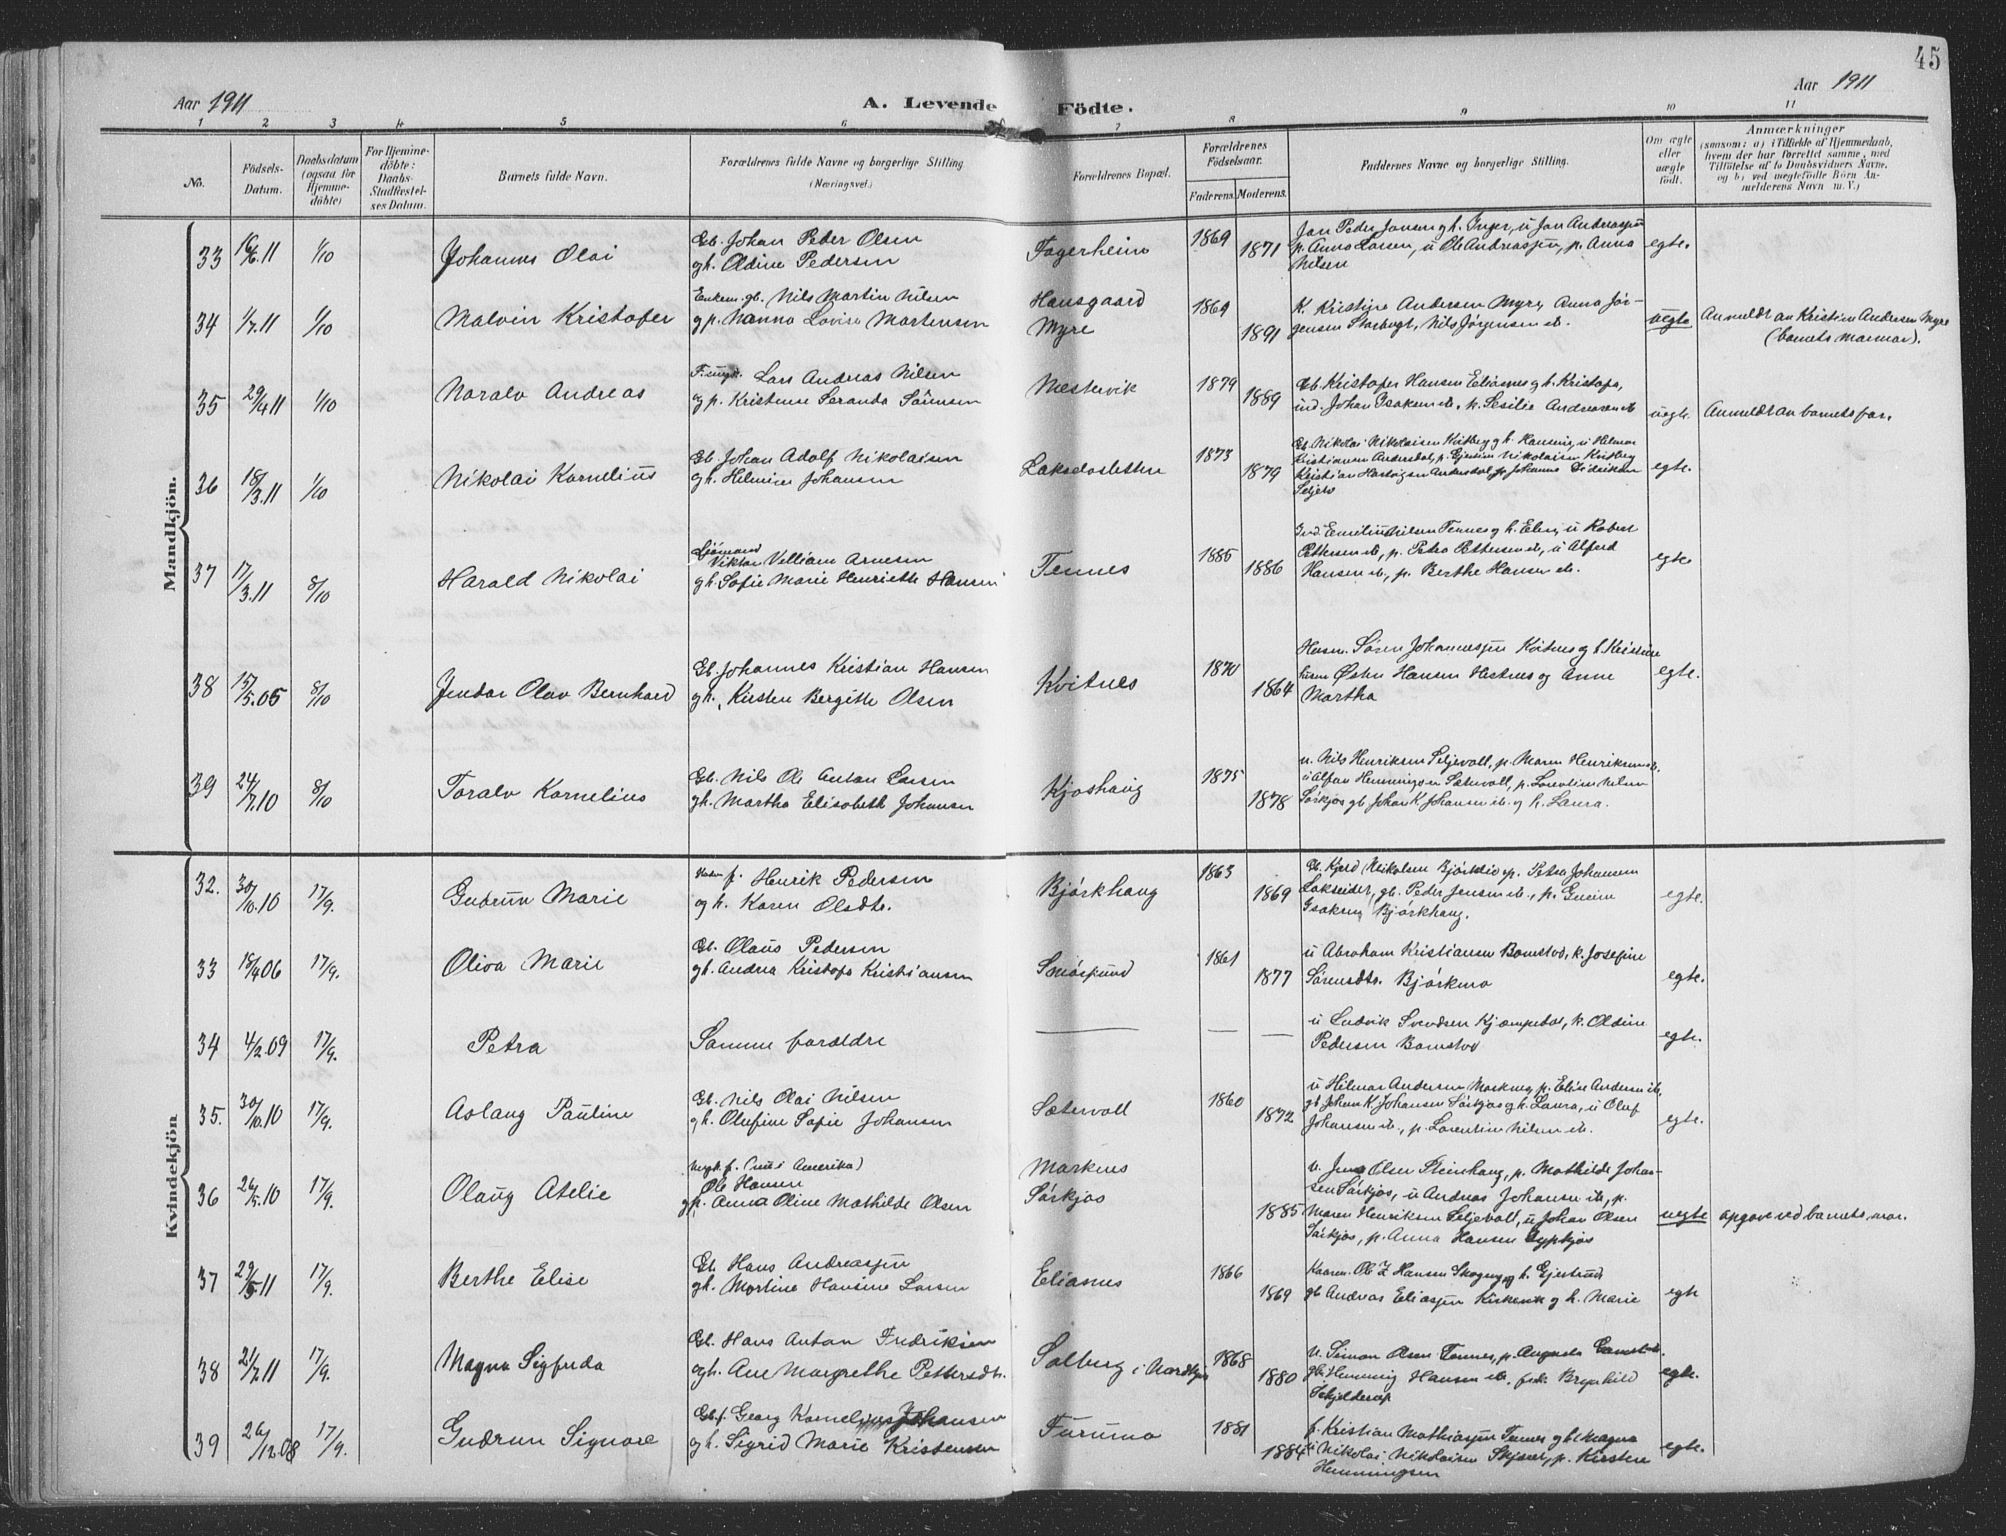 45
Aar 1911
A. Levende Födte.
Aar 1911
1 2 3 4 5 6 7 8 9 10 11
No.
Födsels-Datum.
Daabsdatum (ogsaa for Hjemme-döbte)
For Hjemme-döbte: Daabs-Stadfæstel-ses Datum.
Barnets fulde Navn.
Forældrenes fulde Navne og borgerlige Stilling (Næringsvei.)
Forældrenes Bopæl.
Forældrenes Födselsaar.
Faderens. Moderens.
Faddernes Navne og borgerlige Stilling.
Om ægte eller uægte födt.
Anmærkninger
(saasom: a) i Tilfælde af Hjemmedaab, hvem der har forrettet samme, med Tilföielse af to Daabsvidners Navne, og b) ved uægtefödte Börn Anmelderens Navn m. V.)
Mandkjön.
33 16/6.11 1/10 Johannes Olai
Gb. Johan Peder Olsen
gh. Oldine Pedersen
Fagerheim 1869 1871
Jan Peder Jansen gh. Inger, u Jan Andreassen
p. Anna Larsen, u Ole Andreassen, p. Anna
Nilsen
egte.
34 1/7.11 1/10 Malvin Kristofer
Enkem. gb. Nils Martin Nilsen
og p. Nanna Lovise Mortensen
Hansgaard
Myre
1869 1891
K. Kristine Andersen Myre, Anna Jör-
gensen Storbugt, Nils Jørgensen ib.
uegte
Anmeldt av Kristine Andersen Myre
(barnets mormor).
35 29/4.11 1/10 Noralv Andreas
Lars Andreas Nilsen
og p. Kristense Seranda Sörensen
Mestervik 1879 1889
Gb. Kristofer Hansen Elianes gh. Kristofa,
ind. Johan Isaksen ib., p. Sesilie Andreasen ib
uegte.
Anmeldt av barnets far.
36 18/3.11 1/10 Nikolai Kornelius
Gb. Johan Adolf Nikolaisen
gh. Helmine Johansen
Laksvatn 1873 1879
Gb. Nikolai Nikolaisen Kvitberg gh. Hansine, u Hilmar
Kristiansen Andersdal, p. Nikolaisen Kvitberg
Kristian Hartvigsen Andersdal, p. Johanna Didriksen
egte.
37 17/3.11 8/10 Harald Nikolai
Sjömand
Viktor Villiam Arnesen
gh. Sofie Marie Henriette Hansen
Tennes 1885 1886
Ind Emil Nilsen Tennes gh. Elen, u Robert
Pettersen ib, p. Petra Pettersen ib, u Alfred
Hansen ib, p. Berthe Hansen ib.
egte
38 15/5.05 8/10 Jendar Olav Bernhard
Gb. Johannes Kristian Hansen
gh. Kirsten Bergitte Olsen
Kvitnes 1870 1864
Husm. Sören Johannessen Kvitnes gh. Kristine
Hansen Hestnes og Anne
Martha
egte.
39 24/7.10 8/10 Toralv Kornelius
Gb. Nils Ole Anton Larsen
gh. Martha Elisabeth Johansen
Kjoshaug 1875 1878
u. Nils Henriksen Seljevoll, p. Maren Henriksen ib.
u Alfon Hemmingsen Sætervoll, p. Lorentine Nilsen
Sörkjos gb. Johan K. Johansen ib. og h. Laura.
Kvindekjön
32. 30/10.10 17/9. Gudrun Marie
f. Henrik Pedersen
og h. Karen Olsdtr.
Björkhaug 1863 1869
Gb. Nikolsen Björklid, p. Petra Johansen
Lakseidet, gb. Peder Jensen ib., p.
Isaksen, Björkhaug.
egte.
33 18/4.06 17/9. Oliva Marie
Gb. Olaus Pedersen
gh. Andrea Kristofa Kristiansen
1861 1877
u Abraham Kristiansen Bomstad, k. Josefine
Sörensdtr. Björkmo
egte.
34 4/2.09 17/9. Petra
Samme foreldre
u Ludvik Svendsen Kjempebol, k. Oldine
Pedersen Bomstad
egte.
35. 30/10.10 17/9. Aslaug Pauline
Gb. Nils Olai Nilsen
gh. Olufine Sofie Johansen
Sætervoll 1860 1872
u Hilmar Andersen Markneg, p. Elise Andersen ib,
gb Johan K. Johansen Sörkjos gh. Laura, u Oluf
Johansen ib, p. Lorentine Nilsen ib.
egte.
36 26/5.10 17/9. Olaug Atelie
f. (nu i Amerika)
Ole Hansen
og p. Anna Oline Mathilde Olsen
Marknes
Sörkjos
1885
u. Jens Olsen Steinhaug, p. Mathilde Johan-
sen Sörkjos, u Andreas Johansen ib, p.
Maren Henriksen Seljevoll, u Johan Olsen
Sörkjos, p. Anna Hansen Sypkjos
uegte
opgave ved barnets mor.
37 29/5.11 17/9. Berthe Elise
Gb. Hans Andreassen
gh. Martine Hansine Larsen
Elianes 1866 1869
Ole Z Hansen Skogeng, h. Gjertrud
gb Andreas Eliassen Kirkenes og h. Marie
egte
38 21/7.11 17/9. Magna Sigfrida
Gb. Hans Anton Fredriksen
og h. Ane Margrethe Pettersdtr.
Solberg i Nordkjos 1868 1880
u. Simon Olsen Tennes, p. Augusta
gb. Hemming Hansen ib, frk. Brynhild
Schjelderup
egte.
39 26/12.08 17/9. Gudrun Signora
Gb. f. Georg Kornelius Johansen
og h. Sigrid Marie Kristensen
Furumo 1881 1884
f. Kristian Mathiassen Tennes gh. Magna
u Nikolai Nikolaisen, p. Kirsten
Hemmingsen
egte.